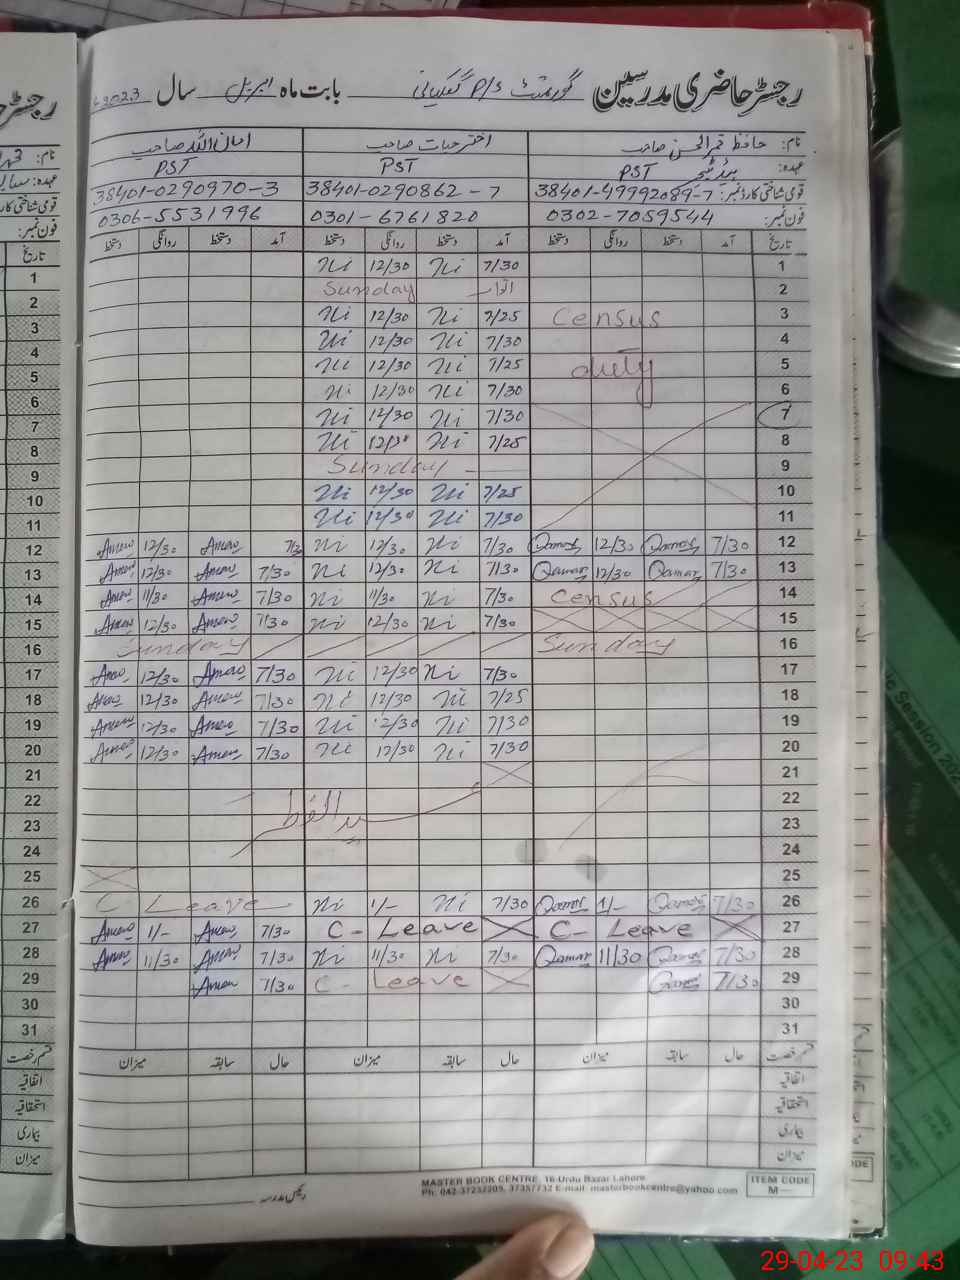 رجسٹر حاضری مدرسین گورنمنٹ P/S بابت ماہ اپریل سال 2023ء
نام: حافظ قمر الحسن صاحب اختر حیات صاحب امان اللہ صاحب
عہدہ: ہیڈ ٹیچر PST PST PST
قومی شناختی کارڈ نمبر: 38401-49992089-7 38401-0290862-7 38401-0290970-3
فون نمبر: 0302-7059544 0301-6761820 0306-5531996
تاریخ آمد دستخط روانگی دستخط آمد دستخط روانگی دستخط آمد دستخط روانگی دستخط
1 7/30 Ni 12/30 Ni
2 اتوار Sunday
3 Census 7/25 Ni 12/30 Ni
4 7/30 Ni 12/30 Ni
5 duty 7/25 Ni 12/30 Ni
6 7/30 Ni 12/30 Ni
7 7/30 Ni 12/30 Ni
8 7/25 Ni 12/30 Ni
9 Sunday
10 7/25 Ni 12/30 Ni
11 7/30 Ni 12/30 Ni
12 7/30 Qamar 12/30 Qamar 7/30 Ni 12/30 Ni 7/30 Aman 12/30 Aman
13 7/30 Qamar 12/30 Qamar 7/30 Ni 12/30 Ni 7/30 Aman 12/30 Aman
14 Census 7/30 Ni 11/30 Ni 7/30 Aman 11/30 Aman
15 7/30 Ni 12/30 Ni 7/30 Aman 12/30 Aman
16 Sunday Sunday
17 7/30 Ni 12/30 Ni 7/30 Aman 12/30 Aman
18 7/25 Ni 12/30 Ni 7/30 Aman 12/30 Aman
19 7/30 Ni 12/30 Ni 7/30 Aman 12/30 Aman
20 7/30 Ni 12/30 Ni 7/30 Aman 12/30 Aman
21
22
عید الفطر
23
24
25
26 7/30 Qamar 1/- Qamar 7/30 Ni 1/- Ni C Leave
27 C- Leave C- Leave 7/30 Aman 1/- Aman
28 7/30 Qamar 11/30 Qamar 7/30 Ni 11/30 Ni 7/30 Aman 11/30 Aman
29 7/30 Qamar C- Leave 7/30 Aman
30
31
قسم رخصت حال سابقہ میزان حال سابقہ میزان حال سابقہ میزان
اتفاقیہ
استحقاقیہ
بیماری
میزان
رئیس مدرسہ
MASTER BOOK CENTRE, 16-Urdu Bazar Lahore.
Ph: 042-37232205, 37357732 E-mail: masterbookcentre@yahoo.com
ITEM CODE
M—
29-04-23 09:43